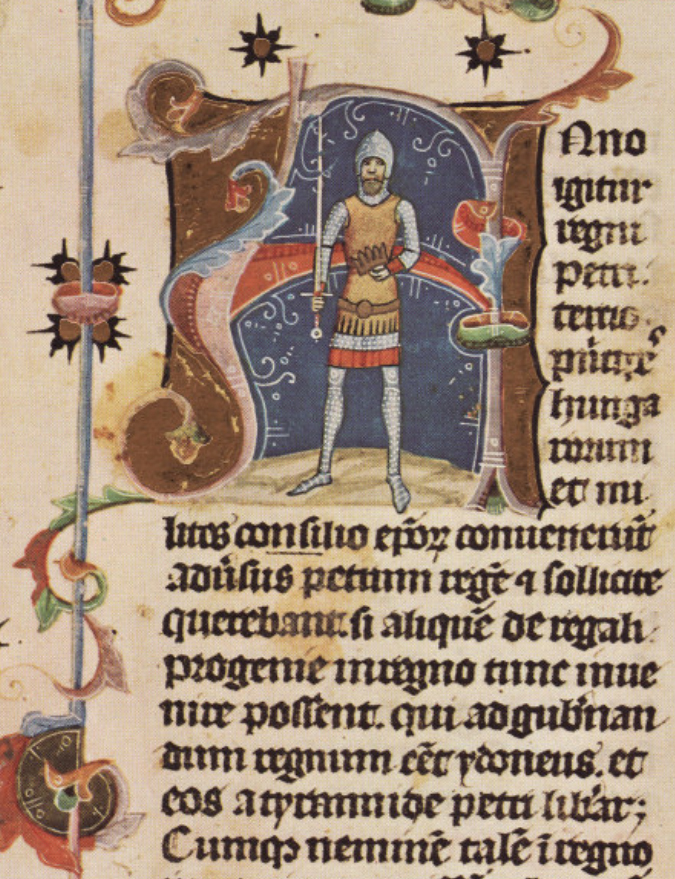 Anno
igitur
regni
petri.
tercio.
p̃ncipẽ
hunga
rorum
et mi
lites consilio ep̃oꝝ conuenerũt
adũsus petrum regẽ ⁊ sollicite
querebant. si aliquẽ de regali
progenie in regno tunc inue
nire possent. qui ad gub̃nan
dum regnum cẽt ydoneus. et
eos a tyrannide petri lib̃ar;
Cumqꝫ neminẽ talẽ ĩ regno